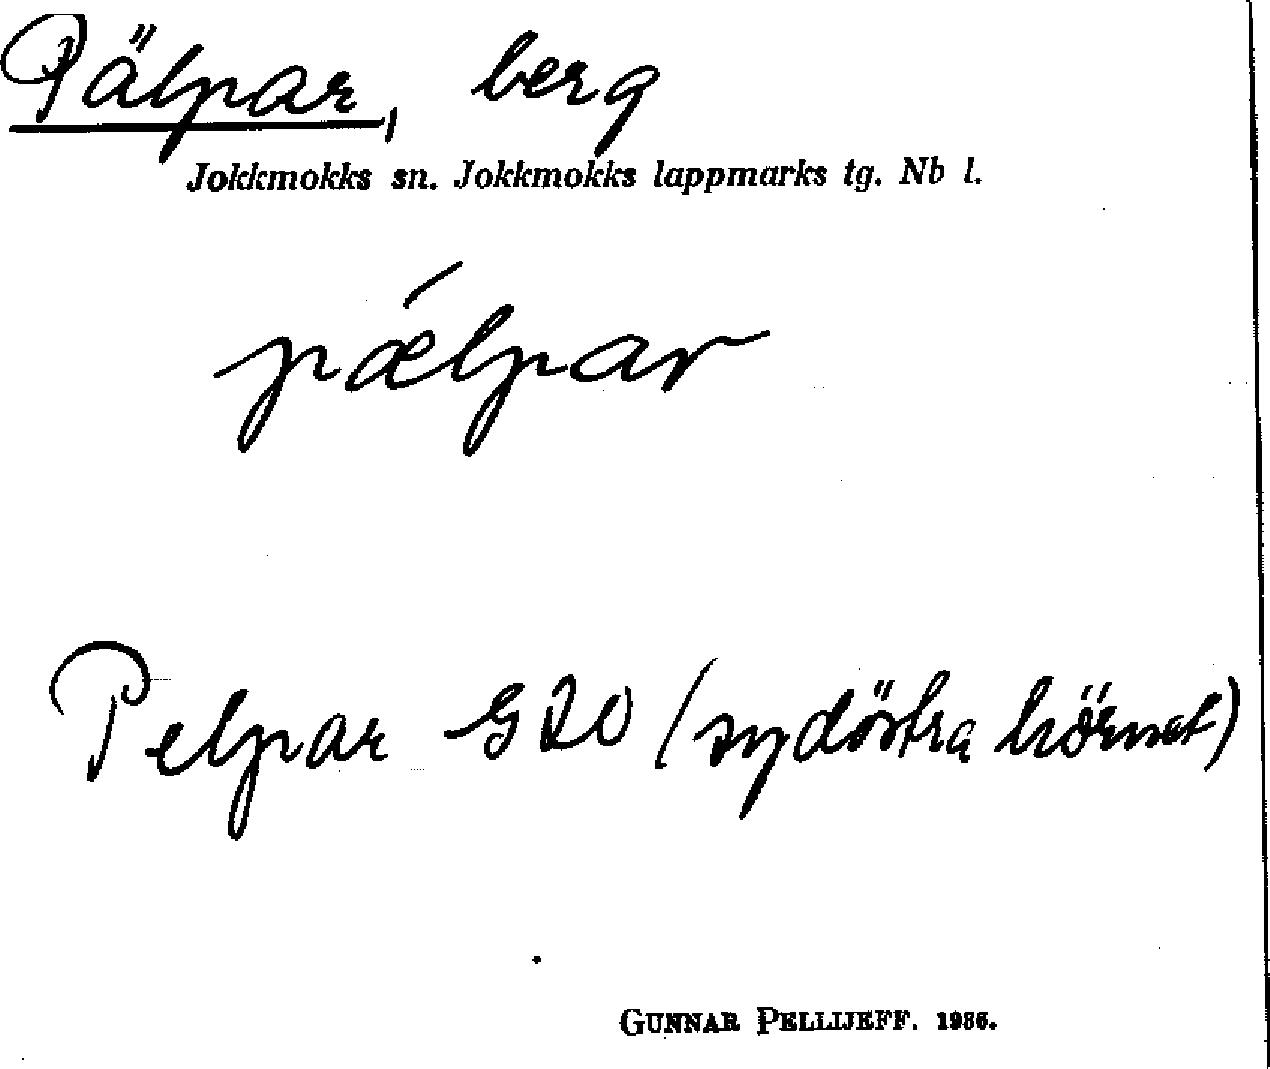 Pälpar, berg
Jokkmokks sn. Jokkmokks lappmarks tg. Nb l.
pǽlpar
Pelpar G20 (sydöstra hörnet)
GUNNAR PELLIJEFF. 1936.